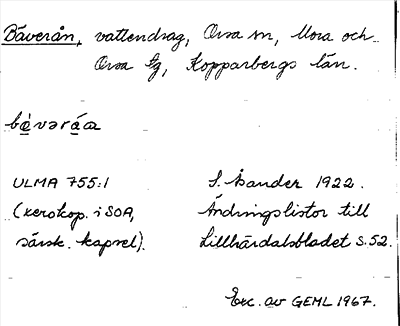 Bäverån, vattendrag, Orsa sn, Mora och
Orsa tg, Kopparbergs län.
bèvəráa
ULMA 755:1 S. Åsander 1922.
(xerokop. i SOA, Ändringslistor till
särsk. kapsel). Lillhärdalsbladet s. 52.
Exc. av GEHL 1967.